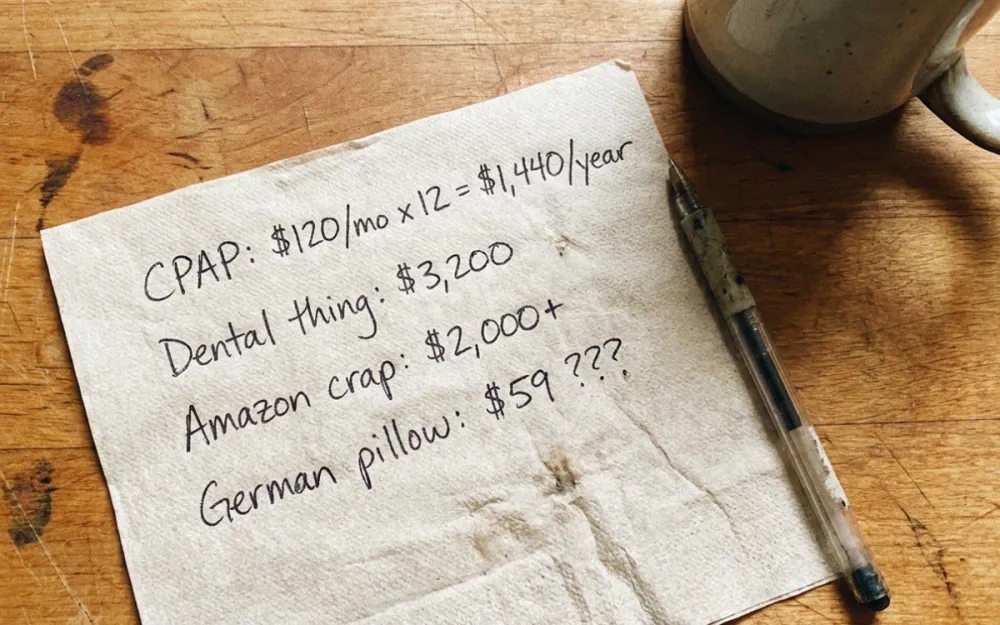 CPAP: $120/mo x 12 = $1,440/year
Dental thing: $3,200
Amazon crap: $2,000+
German pillow: $59 ???